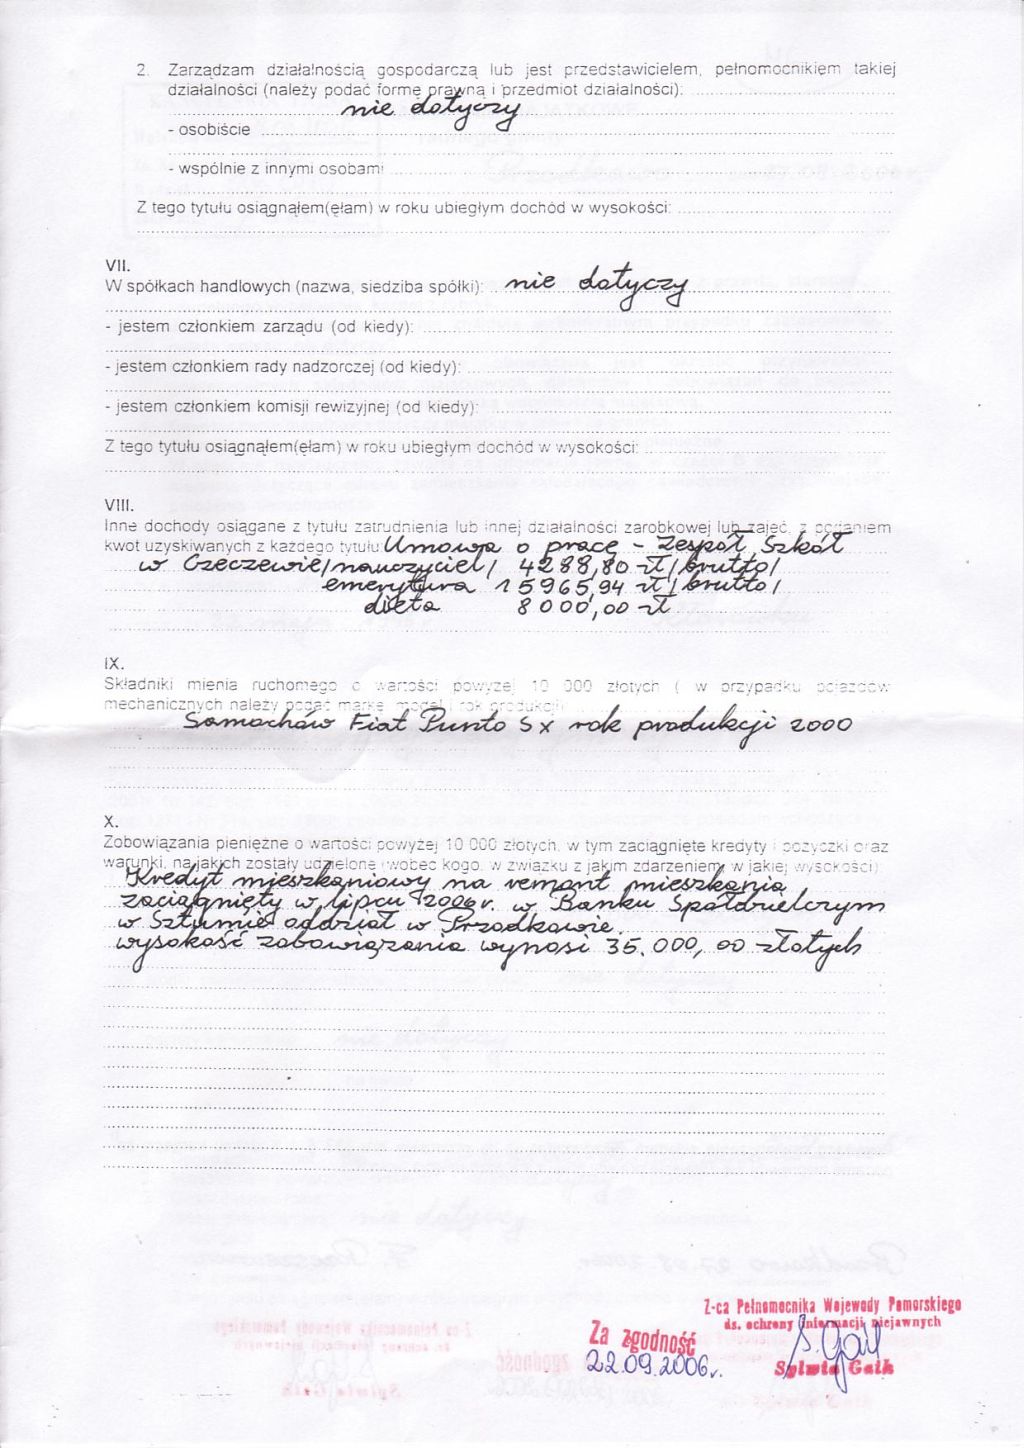 2. Zarządzam działalnością gospodarczą lub jest przedstawicielem, pełnomocnikiem takiej
działalności (należy podać formę prawną i przedmiot działalności):
nie dotyczy
- osobiście
- wspólnie z innymi osobami
Z tego tytułu osiągnąłem(ęłam) w roku ubiegłym dochód w wysokości:
VII.
W spółkach handlowych (nazwa, siedziba spółki): nie dotyczy
- jestem członkiem zarządu (od kiedy):
- jestem członkiem rady nadzorczej (od kiedy):
- jestem członkiem komisji rewizyjnej (od kiedy):
Z tego tytułu osiągnąłem(ęłam) w roku ubiegłym dochód w wysokości:
VIII.
Inne dochody osiągane z tytułu zatrudnienia lub innej działalności zarobkowej lub zajęć, z podaniem
kwot uzyskiwanych z każdego tytułu: Umowa o pracę - Zespół Szkół
w Czeczewie /nauczyciel/ 4288,80 zł /brutto/
emerytura 15965,94 zł /brutto/
dieta 8000,00 zł
IX.
Składniki mienia ruchomego o wartości powyżej 10 000 złotych ( w przypadku pojazdów
mechanicznych należy podać markę, model i rok produkcji)
Samochów Fiat Punto Sx rok produkcji 2000
X.
Zobowiązania pieniężne o wartości powyżej 10 000 złotych, w tym zaciągnięte kredyty i pożyczki oraz
warunki, na jakich zostały udzielone (wobec kogo, w związku z jakim zdarzeniem, w jakiej wysokości)
Kredyt mieszkaniowy na remont mieszkania
zaciągnięty w lipcu 2006 r. w Banku Spółdzielczym
w Sztumie oddział w Przodkowie.
wysokość zobowiązania wynosi 35.000,00 złotych
Z-ca Pełnomocnika Wojewody Pomorskiego
ds. ochrony informacji niejawnych
Za zgodność
S. Gaik
22.09.2006r.
Sylwia Gaik